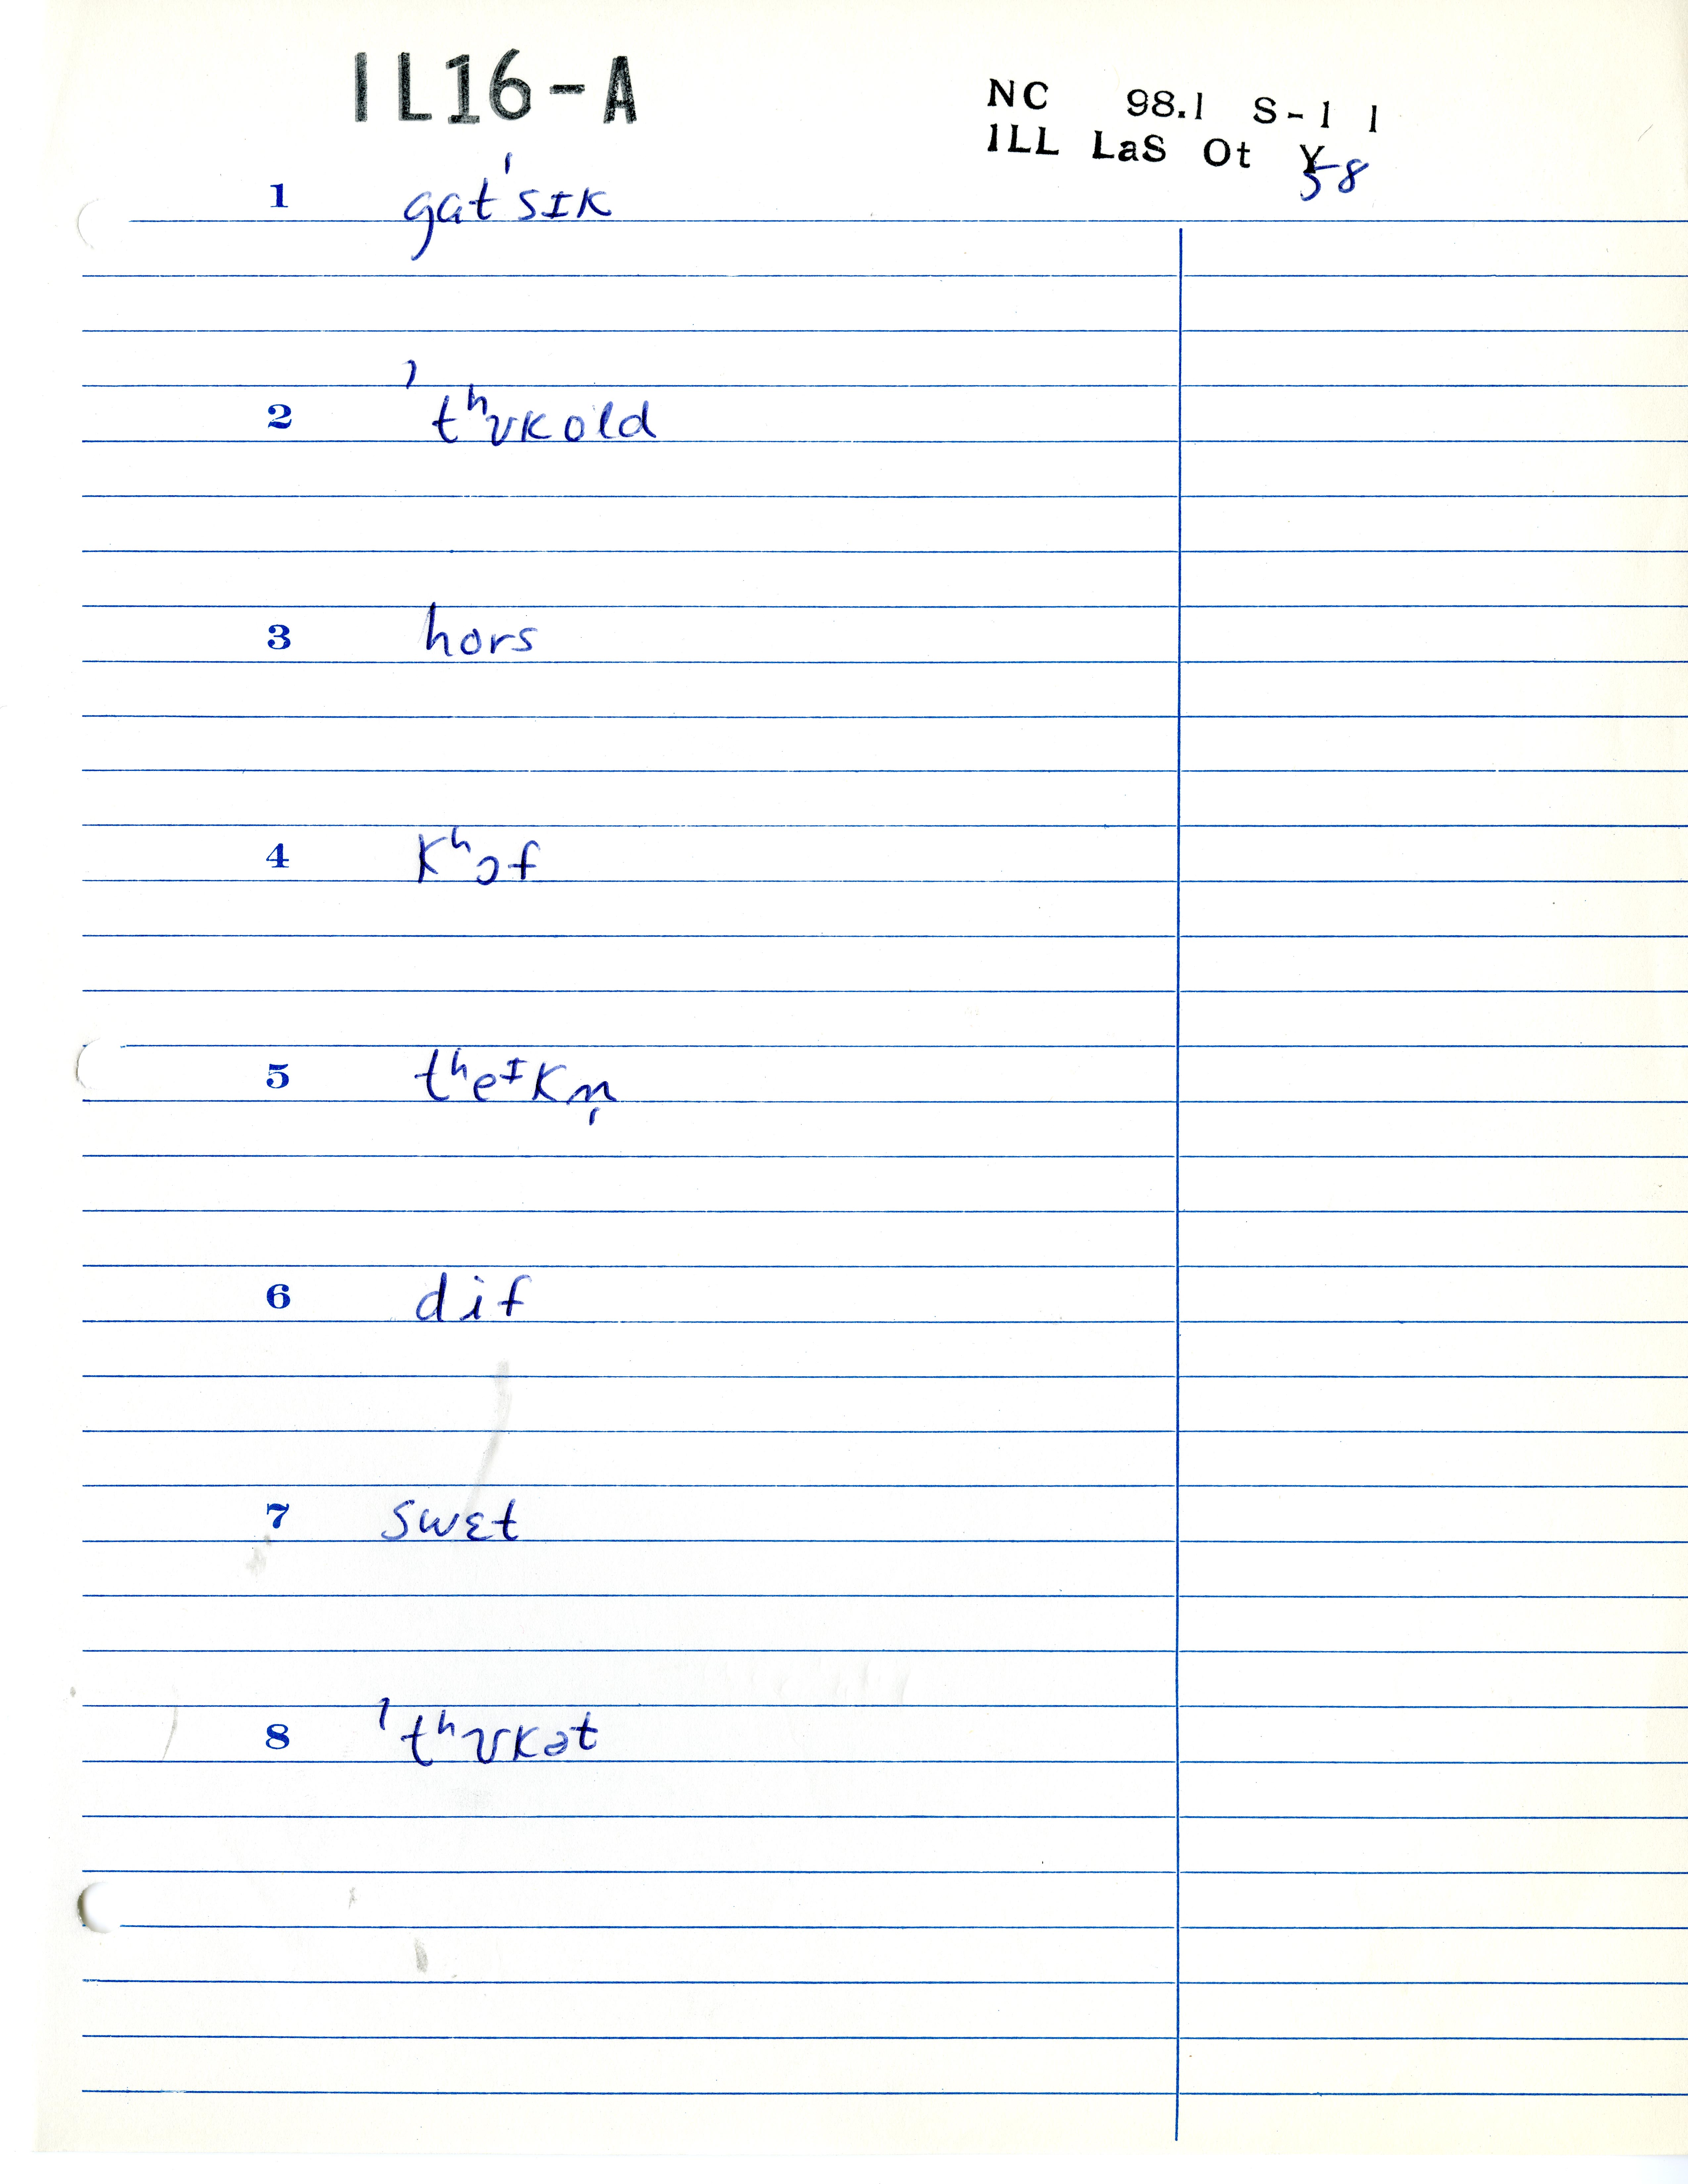 IL16-A
NC 98.1 S-1 1
ILL LaS Ot Y 58
1 gatˈsɪk
2 ˈtʰʊkold
3 hors
4 kʰɔf
5 tʰeᶦkn̩
6 dif
7 swɛt
8 ˈtʰʊkət